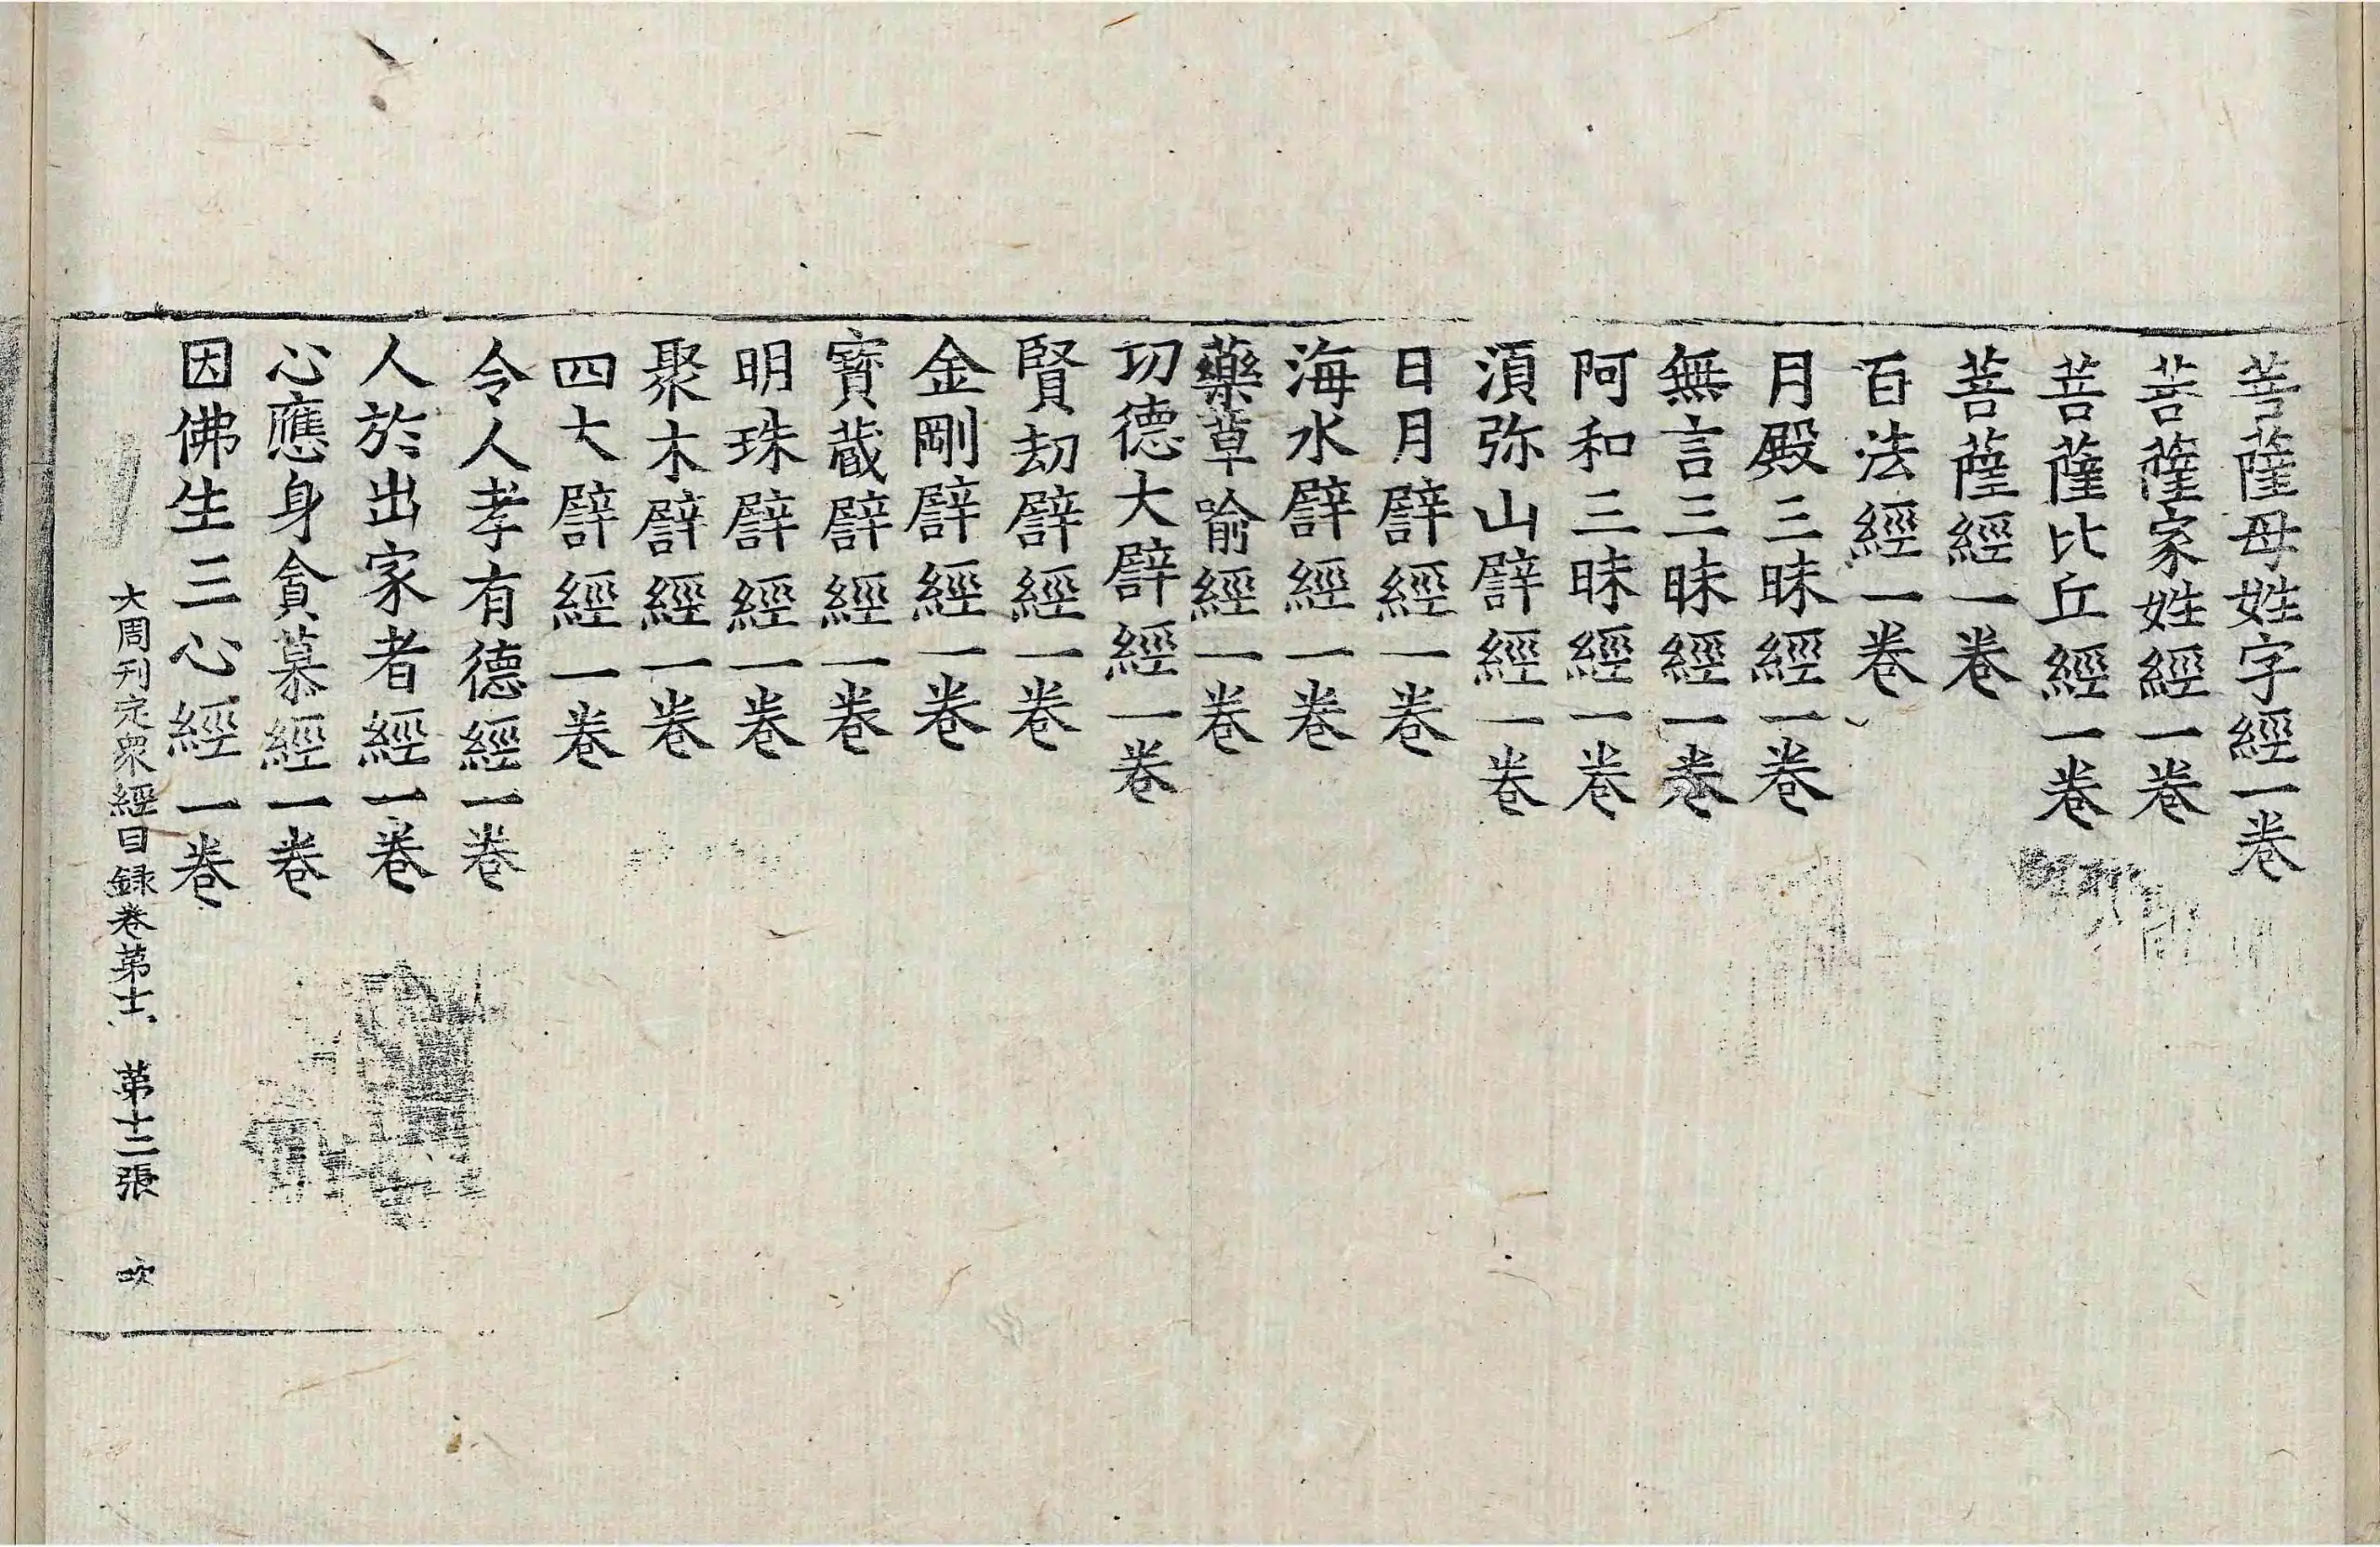 菩薩母姓字經一卷
菩薩家姓經一卷
菩薩比丘經一卷
菩薩經一卷
百法經一卷
月殿三昧經一卷
無言三昧經一卷
阿和三昧經一卷
湏弥山譬經一卷
日月譬經一卷
海水譬經一卷
藥草喻經一卷
功德大譬經一卷
賢劫譬經一卷
金剛譬經一卷
寶藏譬經一卷
明珠譬經一卷
聚木譬經一卷
四大譬經一卷
令人孝有德經一卷
人於出家者經一卷
心應身貪慕經一卷
因佛生三心經一卷
大周刊定衆經目録卷苐十一 苐十二張 吹